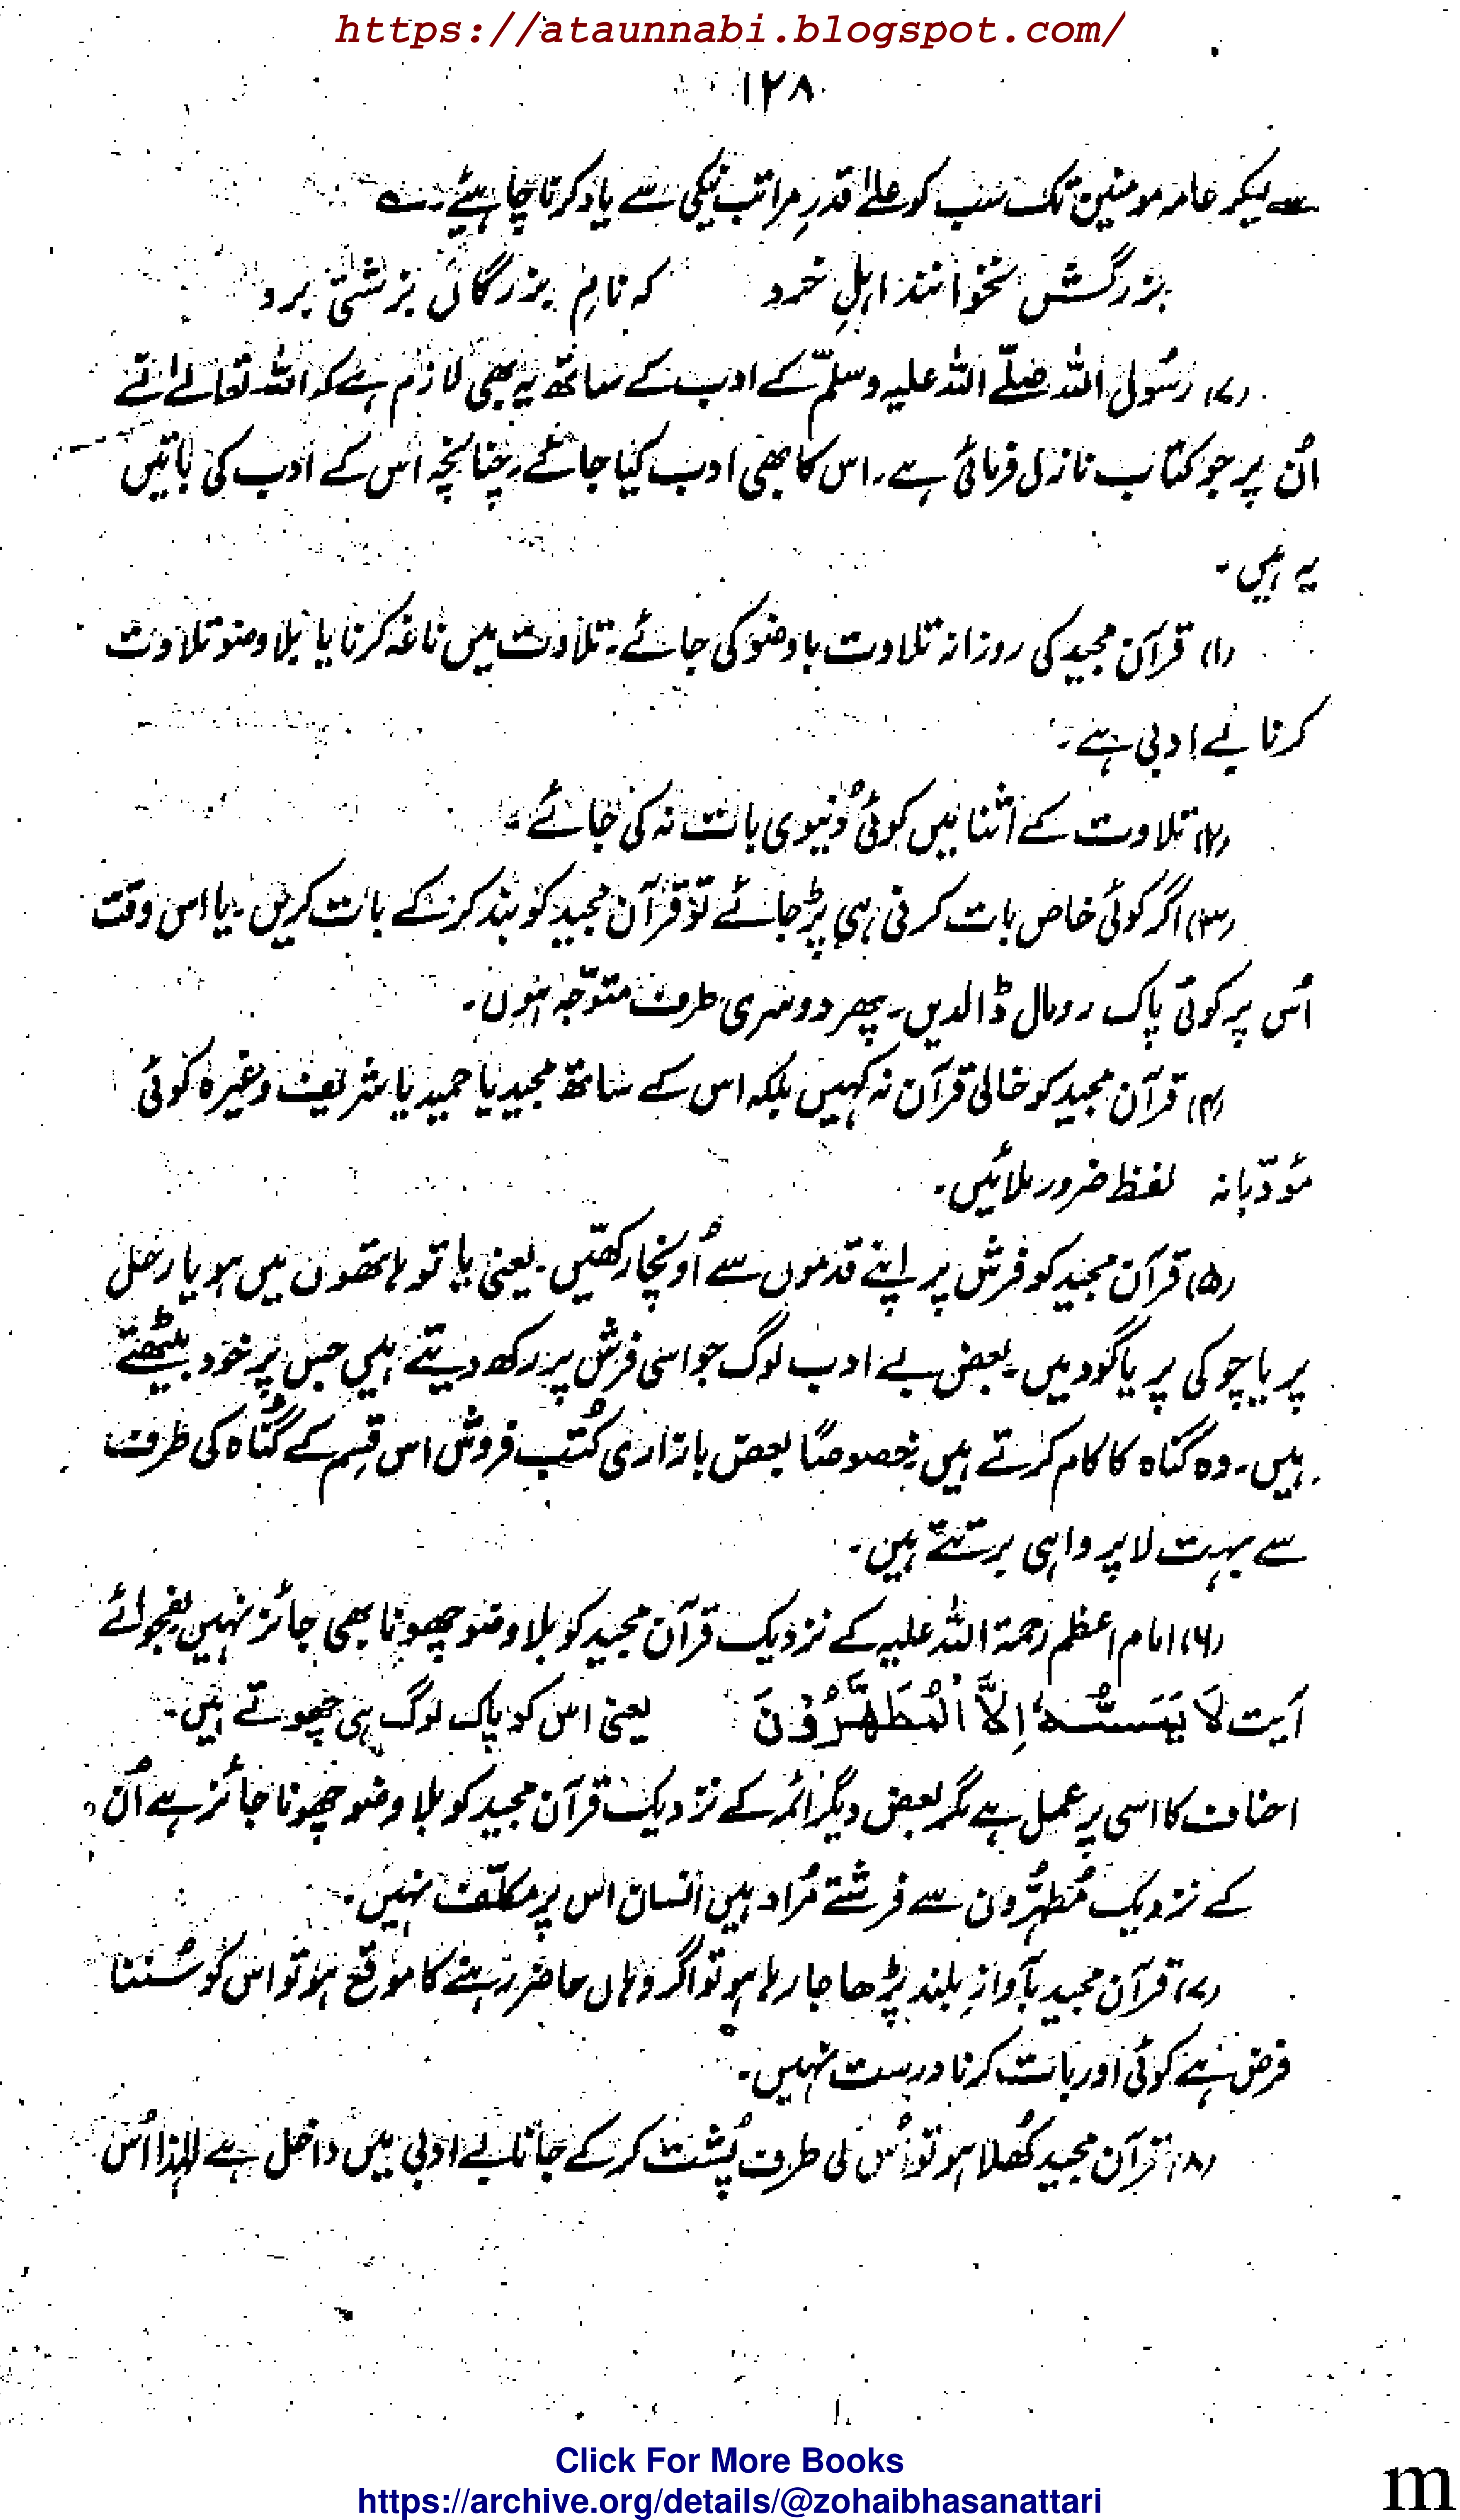 https://ataunnabi.blogspot.com/
۱۲۸
سے لیکر عامہ مومنین تک سب کو علےٰ قدرِ مراتب نیکی سے یاد کرنا چاہیئے۔ ؎
بزرگش نخوانند اہلِ خرد کہ نامِ بزرگاں بزشتی برد
(۷) رسُول اللہ صلّے اللہ علیہ وسلّم کے ادب کے ساتھ یہ بھی لازم ہے کہ اللہ تعالےٰ نے
اُن پر جو کتاب نازل فرمائی ہے۔ اس کا بھی ادب کیا جائے۔ چنانچہ اس کے ادب کی باتیں
یہ ہیں۔
(۱) قرآن مجید کی روزانہ تلاوت باوضو کی جائے۔ تلاوت میں ناغہ کرنا یا بلا وضو تلاوت
کرنا بے ادبی ہے۔
(۲) تلاوت کے اثنا میں کوئی دُنیوی بات نہ کی جائے۔
(۳) اگر کوئی خاص بات کرنی ہی پڑ جائے تو قرآن مجید کو بند کر کے بات کریں۔ یا اس وقت
اُس پر کوئی پاک رومال ڈالدیں۔ پھر دوسری طرف متوّجہ ہوں۔
(۴) قرآن مجید کو خالی قرآن نہ کہیں بلکہ اس کے ساتھ مجید یا حمید یا شریف وغیرہ کوئی
مؤدّبانہ لفظ ضرور ملائیں۔
(۵) قرآن مجید کو فرش پر اپنے قدموں سے اُونچا رکھیں۔ یعنی یا تو ہاتھوں میں ہو یا رحل
پر یا چوکی پر یا گود میں۔ بعض بے ادب لوگ جو اسی فرش پر رکھ دیتے ہیں جس پر خود بیٹھتے
ہیں۔ وہ گناہ کا کام کرتے ہیں۔ خصوصاً بعض بازاری کُتب فروش اس قِسم کے گُناہ کی طرف
سے بہت لاپرواہی برتتے ہیں۔
(۶) امام اعظم رحمۃ اللہ علیہ کے نزدیک قرآن مجید کو بلا وضو چھونا بھی جائز نہیں بفحوائے
آیت لَا یَمَسُّہٗ اِلَّا الْمُطَهَّرُوْنَ یعنی اس کو پاک لوگ ہی چھوتے ہیں۔
احناف کا اسی پر عمل ہے مگر بعض دیگر ائمہ کے نزدیک قرآن مجید کو بلا وضو چھونا جائز ہے اُن
کے نزدیک مُطہَّرُون سے فرشتے مُراد ہیں انسان اس پر مکلّف نہیں۔
(۷) قرآن مجید بآوازِ بلند پڑھا جا رہا ہو تو اگر وہاں حاضر رہنے کا موقع ہو تو اس کو سُننا
فرض ہے کوئی اور بات کرنا درست نہیں۔
(۸) قرآن مجید کُھلا ہو تو اُس کی طرف پُشت کر کے جانا بے ادبی میں داخل ہے لہٰذا اُس
Click For More Books
https://archive.org/details/@zohaibhasanattari
m